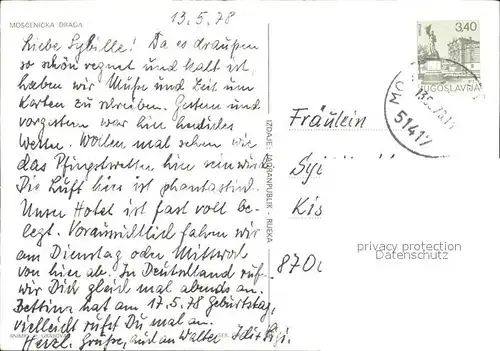 MOŠĆENIČKA DRAGA
13.5.78
Liebe Sybille! Da es draußen
so schön regnet und kalt ist,
haben wir Muße und Zeit um
Karten zu schreiben. Gestern und
vorgestern war hier herrliches
Wetter. Wollen mal sehen wie
das Pfingstwetter hier sein wird.
Die Luft hier ist phantastisch.
Unser Hotel ist fast voll be-
legt. Voraussichtlich fahren wir
am Dienstag oder Mittwoch
von hier ab. In Deutschland rufen
wir Dich gleich mal abends an.
Bettina hat am 17.5.78 Geburtstag,
vielleicht rufst Du mal an.
Herzl. Grüße, auch an Walter
IZDAJE: JADRANPUBLIK - RIJEKA
3,40
JUGOSLAVIJA
51417
Fräulein
Sy
Kis
8700
privacy protection
Datenschutz